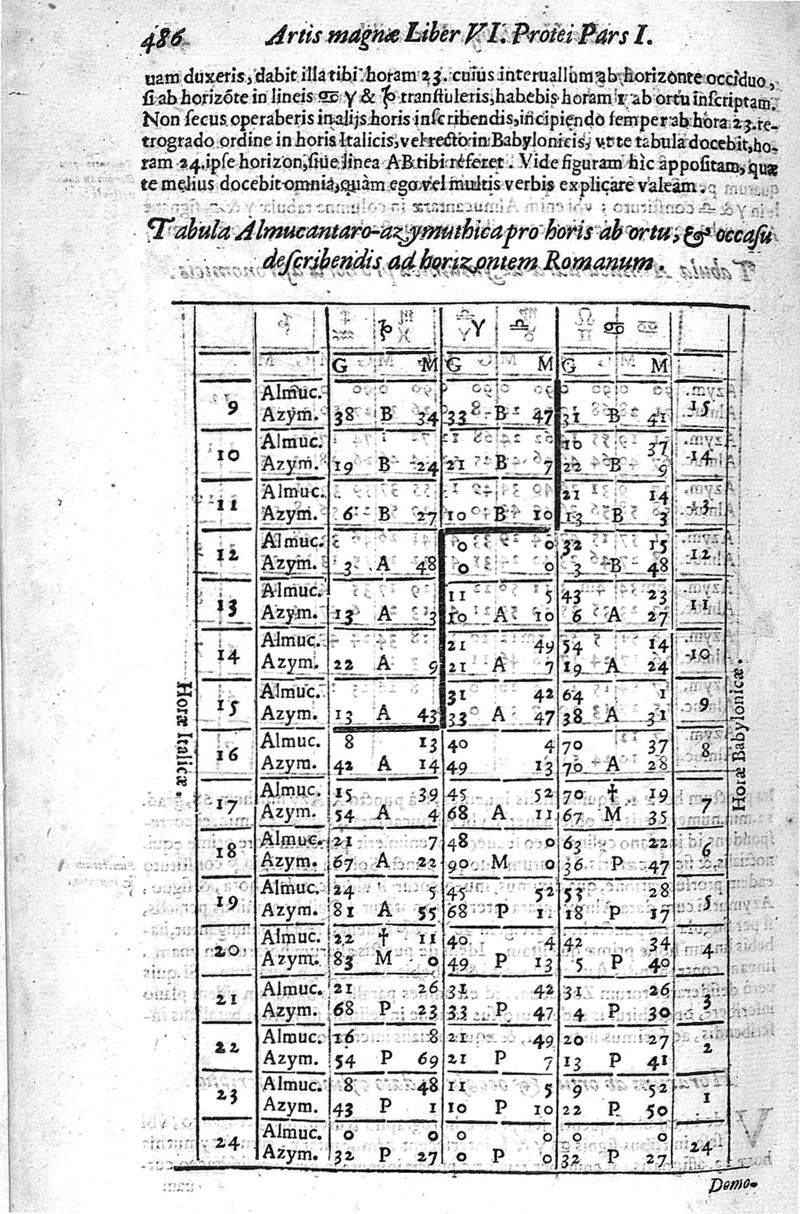 486 Artis magnæ Liber VI. Protei Pars I.
uam duxeris, dabit illa tibi horam 23. cuius interuallum ab horizonte occiduo,
si ab horizōte in lineis ♋ ♈ & ♑ transtuleris, habebis horam 1 ab ortu inscriptam.
Non secus operaberis in alijs horis inscribendis, incipiendo semper ab hora 23. re-
trogrado ordine in horis Italicis, vel recto in Babylonicis, vt te tabula docebit, ho-
ram 24. ipse horizon, siue linea AB tibi referet. Vide figuram hic appositam, quæ
te melius docebit omnia, quàm ego vel multis verbis explicare valeam.
Tabula Almucantaro-azymuthica pro horis ab ortu, & occasu
describendis ad horizontem Romanum.
♑ ♈ ♎ ♋
G M G M G M
Horæ Italicæ.
Horæ Babylonicæ.
9 Almuc. 15
Azym. 38 B 34 33 B 47 31 B 41
10 Almuc. 10 37 14
Azym. 19 B 24 21 B 7 22 B 9
11 Almuc. 21 14 13
Azym. 6 B 27 10 B 10 13 B 3
12 Almuc. 0 0 32 15 12
Azym. 3 A 48 0 0 3 B 48
13 Almuc. 11 5 43 23 11
Azym. 13 A 3 10 A 10 6 A 27
14 Almuc. 21 49 54 14 10
Azym. 22 A 9 21 A 7 19 A 24
15 Almuc. 31 42 64 1 9
Azym. 13 A 43 33 A 47 38 A 31
16 Almuc. 8 13 40 4 70 37 8
Azym. 42 A 14 49 13 70 A 28
17 Almuc. 15 39 45 52 70 † 19 7
Azym. 54 A 4 68 A 11 67 M 35
18 Almuc. 21 7 48 0 63 22 6
Azym. 67 A 22 90 M 0 36 P 47
19 Almuc. 24 5 45 52 53 28 5
Azym. 81 A 55 68 P 11 18 P 17
20 Almuc. 22 † 11 40 4 42 34 4
Azym. 83 M 0 49 P 13 5 P 40
21 Almuc. 21 26 31 42 31 26 3
Azym. 68 P 23 33 P 47 4 P 30
22 Almuc. 16 8 21 49 20 27 2
Azym. 54 P 69 21 P 7 13 P 41
23 Almuc. 8 48 11 5 9 52 1
Azym. 43 P 1 10 P 10 22 P 50
24 Almuc. 0 0 0 0 0 0 24
Azym. 32 P 27 0 P 0 32 P 27
Demo-